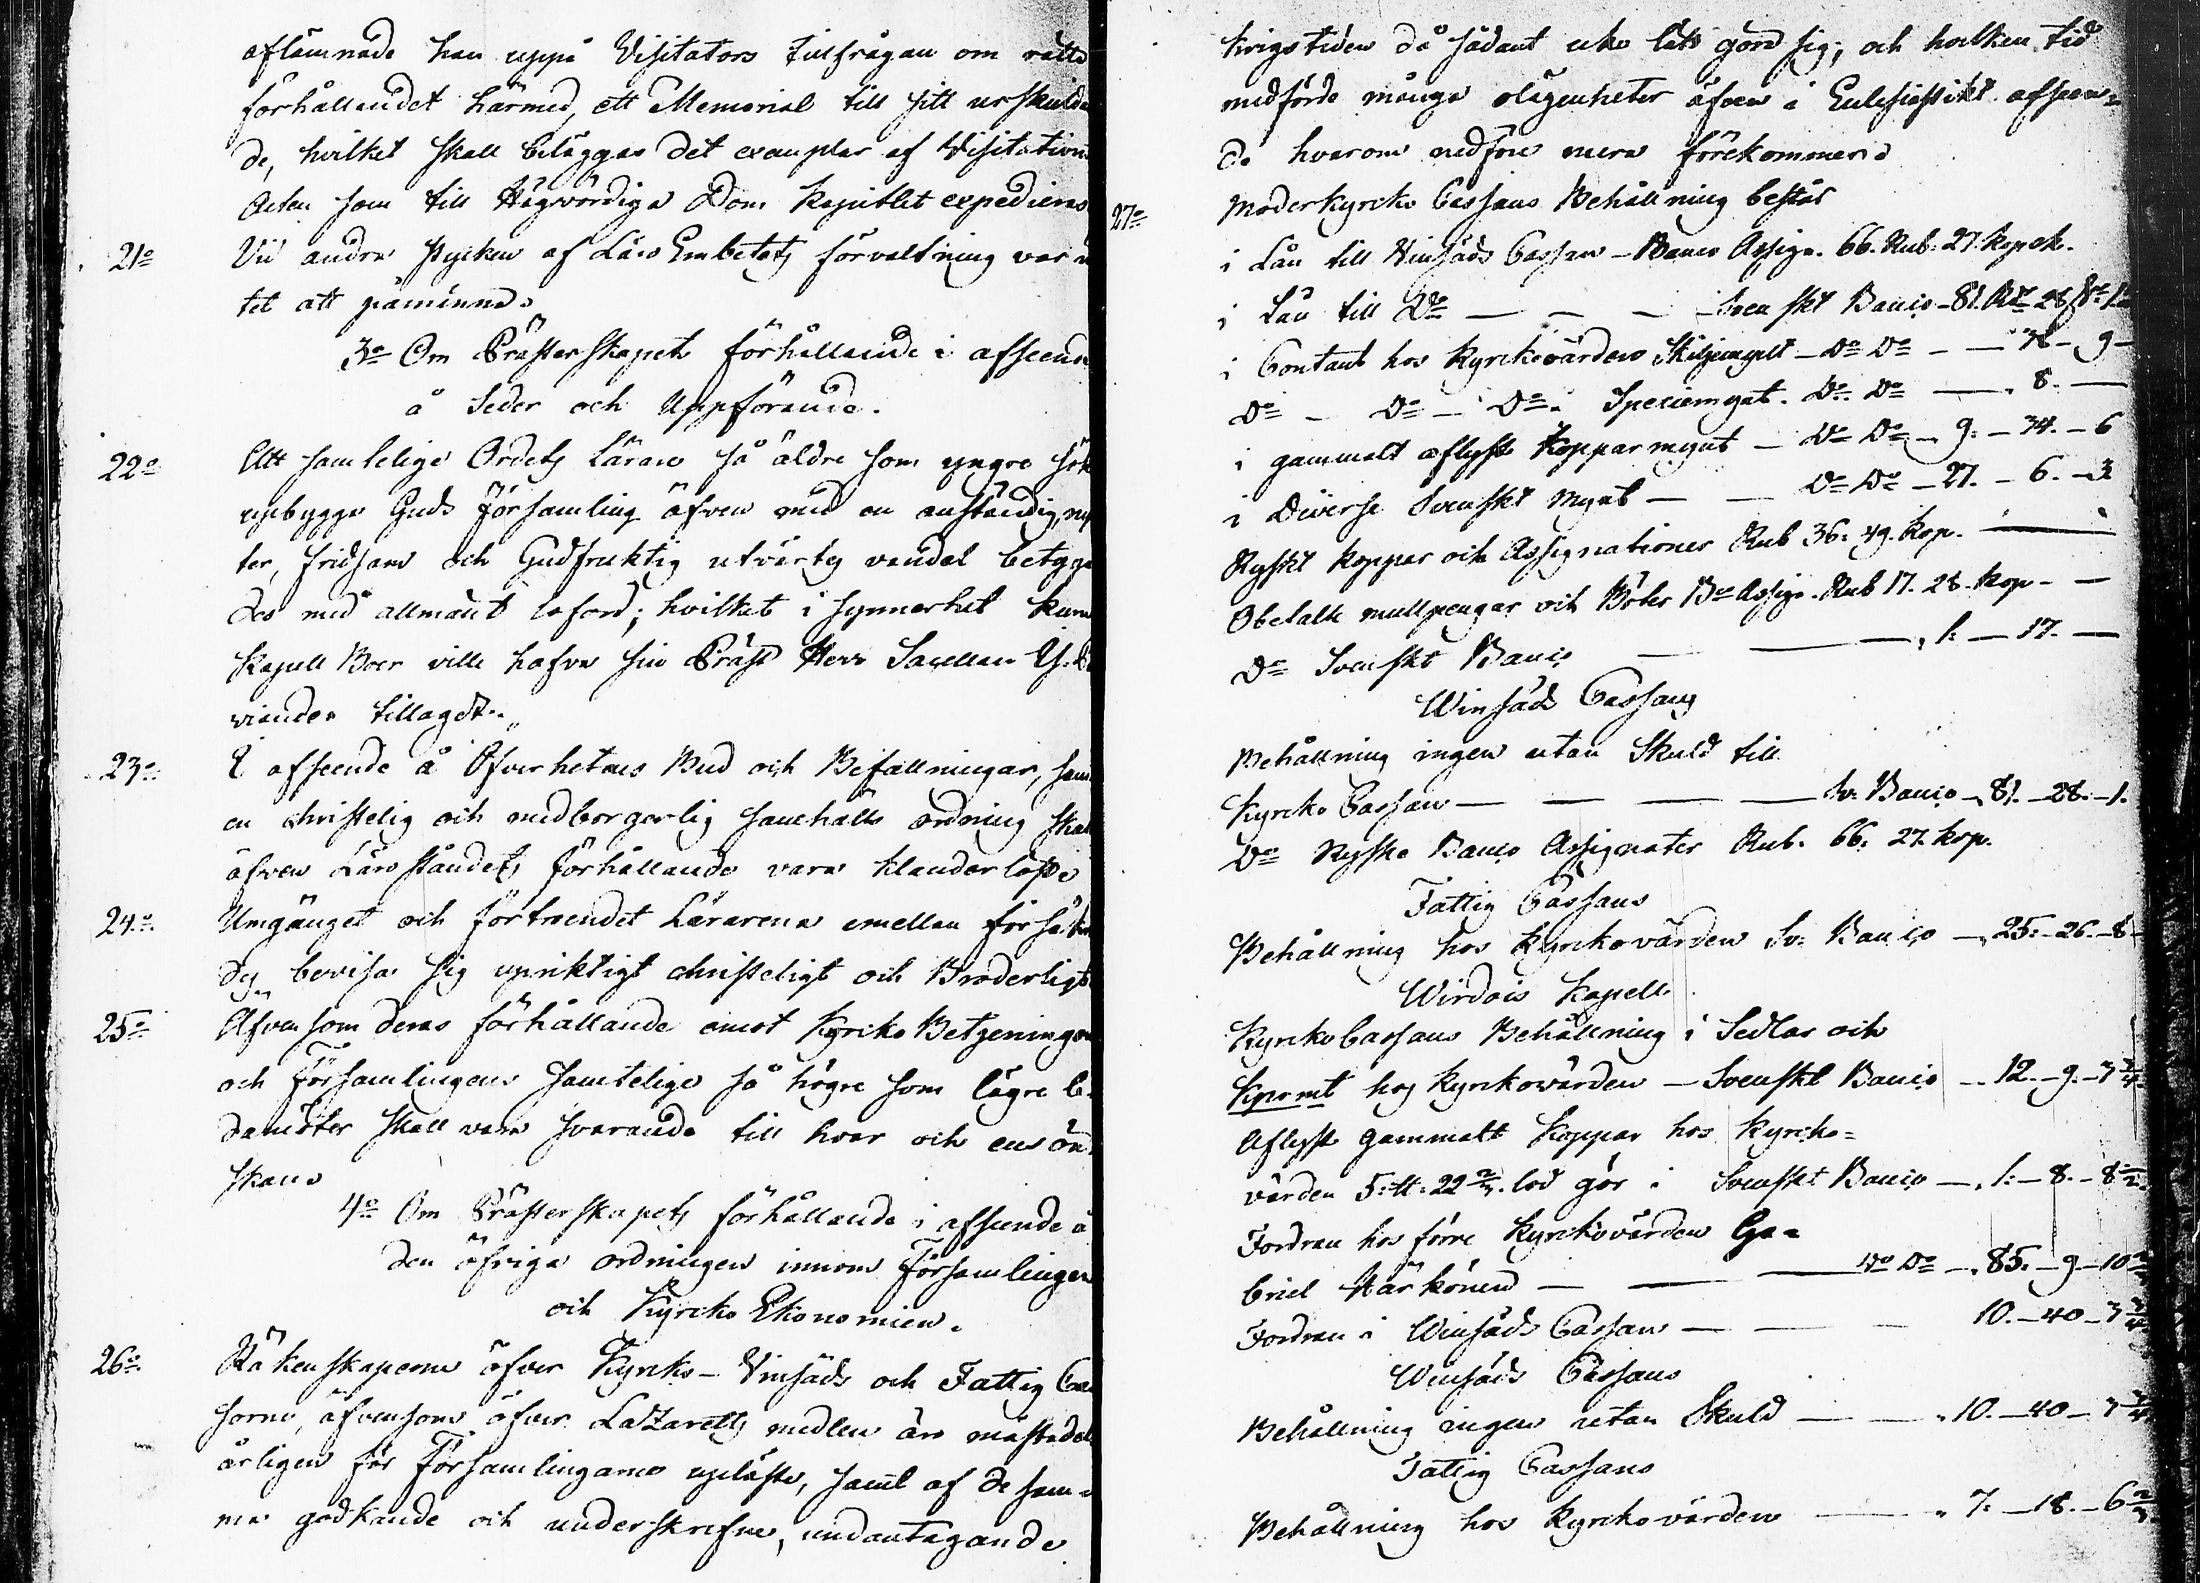 aflämnade han uppå Visitators tilfrågan om rätta
förhållandet härmed, ett Memorial till sitt urskulda
de, hvilket skall biläggas det exemplar af Visitations
Acten som till Högvördiga Dom Kapitlet expedieras
21o Vid andra stycken af Läro Embetets förvaltning var in
tet att påminna.
3o Om Prästerskapets förhållande i afseende
å Seder och Uppförande.
22o Att samtelige Ordets Lärare så äldre som yngre sök
upbygga Guds församling äfven med en anständig, nyk
ter, fridsam och Gudfruktig utvärtes vandel betyga
des med allmänt loford; hvilket i synnerhet
Kapell Boer ville hafva sin Präst Herr Sacellan
tillagdt.
23o I afseende å Öfverhetens Bud och Befallningar, samt
en christelig och medborgerlig samhälls ordning skall
äfven Läroståndets förhållande vara klanderlöst
24o Umgänget och förtroendet Lärarena emellan försäkra
des bevisa sig upriktigt christeligt och Broderligt
25o Äfvensom deras förhållande emot Kyrcko Betjeningen
och Församlingens samtelige så högre som lägre le-
damöter skall vara svarande till hvar och ens ön
skan
4o Om Prästerskapets förhållande i afseende å
den öfriga ordningen innom Församlingen
och Kyrcko Ekonomien.
26o Räkenskaperne öfver Kyrcko- Vinsäds och Fattig Cas
sorne, äfvensom öfver Lazaretts medlen äro mästadels
årligen för Församlingarne upläste, samt af de sam-
me godkände och underskrefne, undantagande
krigstiden då sådant icke låtit göra sig, och hvilken tid
medförde många olägenheter äfven i Eclesiastikt afseen-
de hvarom nedföre mera förekommer.
27o Moderkyrcko Cassans Behållning består
i Lån till Vinsäds Cassan - Banco Assign. 66. Rub. 27. Kopek.
i Lån till Do — — — Svenskt Banco - 81. Rd 28 s 1.
i Contant hos Kyrckovärden Skiljemynt - Do Do - — 38 - 9 -
Do - Do - Do. Speciemynt. Do Do — 8. —
i gammalt aflyst Kopparmynt - Do Do - 9. - 34. - 6
i Diverse Svenskt Mynt — — Do Do - 27. - 6. - 3
Ryskt Koppar och Assignationer Rub 36. 49. Kop. —
Obetalte mullpengar och Böter Bco Assign. Rub 17. 28. Kop - —
Do Svenskt Banco — — 1. — 17. —
Winsäds Cassans
Behållning ingen utan Skuld till
Kyrcko Cassan — — — — Sv. Banco - 81. - 28. - 1.
Do Ryske Banco Assignater Rub. 66. 27. Kop.
Fattig Cassans
Behållning hos Kyrckovärden Sv. Banco - 25. - 26. - 8 -
Wirdois Kapell
Kyrko Cassans Behållning i Sedlar och
hos Kyrkovärden - Svenskt Banco - 12. - 9. - 7 3/4
Aflyst gammalt Koppar hos Kyrcko=
värden 5. ℔. 22 2/3. lod gör i Svenskt Banco - 1. - 8. - 8 1/2
Fordran hos förre Kyrkovärden Ga=
briel Härkönen — — Do Do - 85. - 9 - 10
Fordran i Winsäds Cassan — — — 10. - 40 - 7 3/4
Winsäds Cassans
Behållning ingen utan Skuld — — 10. - 40 - 7 3/4
Fattig Cassans
Behållning hos Kyrckovärden — 7. - 18. - 6